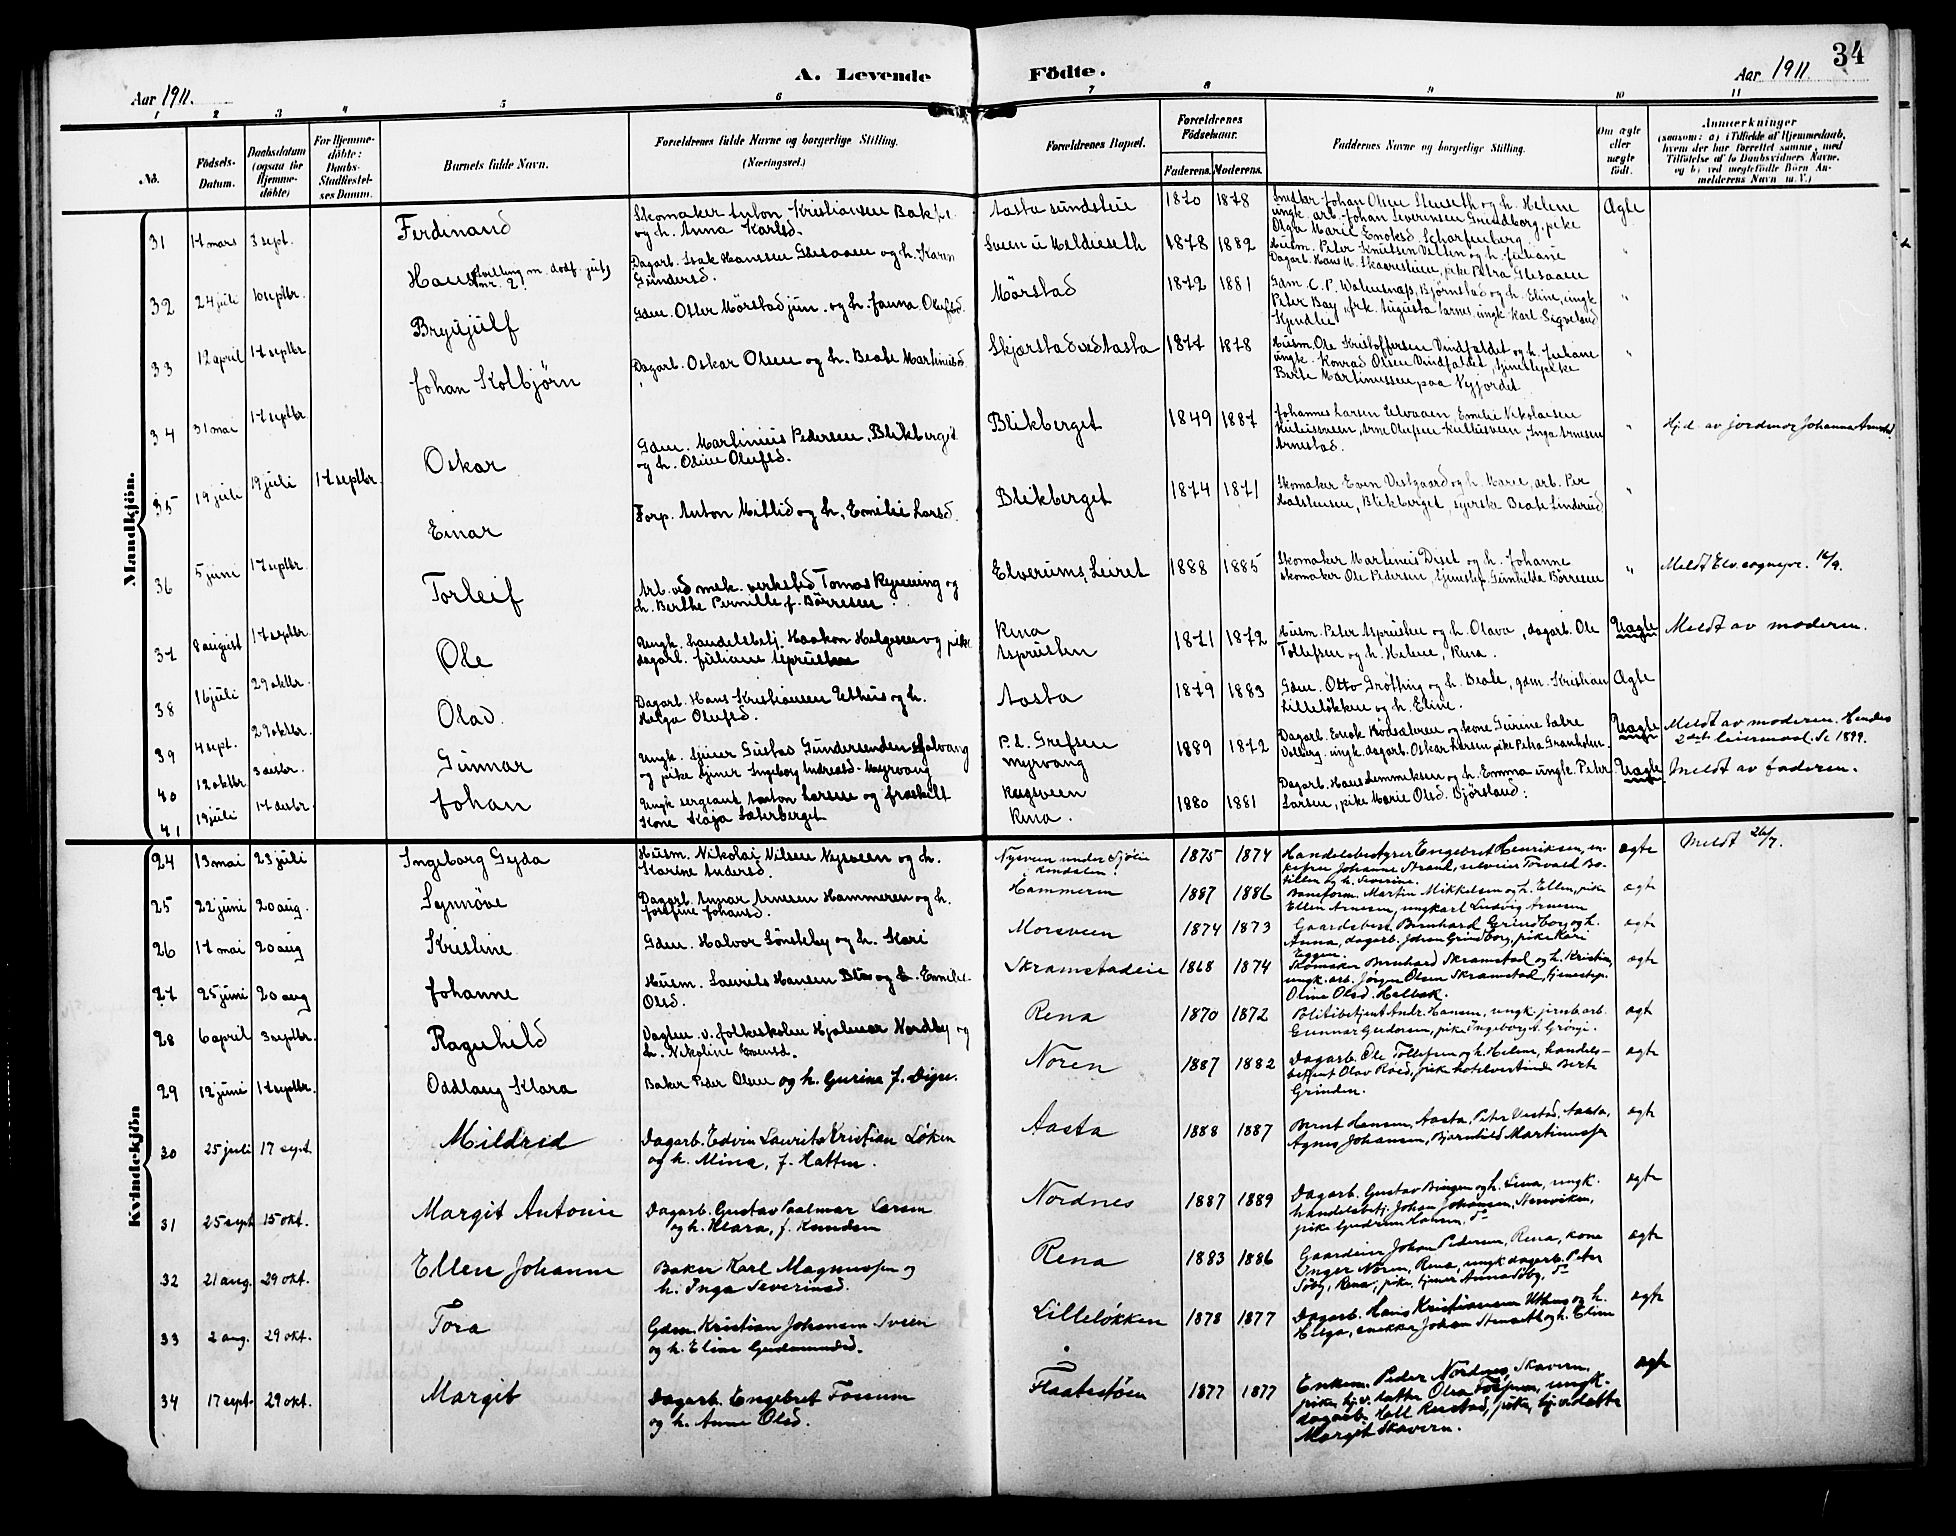 34
A. Levende Födte.
Aar 1911.
Aar 1911.
1 2 3 4 5 6 7 8 9 10 11
No.
Födsels-Datum.
Daabsdatum (ogsaa for Hjemmedöbte)
For Hjemmedöbte: Daabs-Stadfæstelses Datum.
Barnets fulde Navn.
Forældrenes fulde Navne og borgerlige Stilling. (Næringsvei.)
Forældrenes Bopæl.
Forældrenes Födselsaar.
Faderens. Moderens.
Faddernes Navne og borgerlige Stilling.
Om ægte eller uægte født.
Anmærkninger
(saasom: a) i Tilfælde af Hjemmedaab, hvem der har forrettet samme, med Tilföielse af to Daabsvidners Navne, og b) ved uægtefödte Börn Anmelderens Navn m. V.)
Mandkjön.
31 17 mars 3 sept. Ferdinand
Skomaker Anton Kristiansen Bakke og h. Anna Karlsd.
Aasta sundsteie 1870 1878
Smeker Johan Olsen Stenseth og h. Helene ungk. arb. Johan Severinsen Grundborg, pike Olga Marie Enoksd. Scharffenberg.
Ægte
32 24 juli 10 septbr. Hans (tvilling m. dødf. jub nr. 2)
Dagarb. Isak Hanssen Glesaaen og h. Karen Gundersd.
Sveen u Meldieseth 1878 1882
Husm. Peter Knutsen Velten og h. Juliane Dagarb. Hans M. Skaaresteien, pike Petra Glesaaen
"
33 12 april 17 septbr. Brynjulf
Gdm. Otter Mörstad jun. og h. Janna Olufsd.
Mörstad 1872 1881
Gam. C. P. Walensnæss, Björnstad og h. Eline, ungk Peter Bay, frk. Augusta Aarnes, ungk Karl Sigveland Kjendlie
"
34 31 mai 17 septbr. Johan Kolbjörn
Dagarb. Oskar Olsen og h. Beate Martinusd.
Skjærstad ved Aasta 1877 1878
Husm. Ole Kristoffersen Vindfaldet og h. Juliane ungk. Konrad Olsen Vindfaldet, tjenestepike Berte Martinussen paa Nyjordet
"
35 19 juli 19 juli 17 septbr. Oskar
Gdm. Martinius Pedersen, Blikberget og h. Oline Olufsd.
Blikberget 1849 1887
Johannes Larsen Ulvaaen, Emilie Nikolaisen Kuliisveen, Arne Olufsen Kultusveen, Inga Arnesen Arnestad.
" Hj.d. av jordmor Johanna Arnestad
36 5 juni 17 septbr. Einar
Forp. Anton Mittlid og h. Emilie Larsd.
Blikberget 1874 1871
Skomaker Even Vestgaard og h. Marie, arb. Per Halstensen, Blikberget, syerske Beate Linderud
"
37 8 august 17 septbr. Torleif
Arb. ved mek. verksted Tomas Rypening og h. Berthe Pernille f. Börresen.
Elverums, Leiret 1888 1885
Skomaker Martinus Diset og h. Johanne skomaker Ole Pedersen, tjenestep Gunhilda Börresen
" Meldt Elv. sognepr. 16/9.
38 16 juli 29 oktbr. Ole
Ungk. handelsbetj. Haakon Helgesen og pike dagarb. Juliane Aspsusten
Rena Aspsusten 1871 1872
Husm. Peter Aspsusten og h. Olava, dagarb. Ole Tollefsen og h. Helene, Rena.
Uægte Meldt av moderen.
39 4 sept. 29 oktbr. Olav
Dagarb. Hans Kristiansen Uthus og h. Helga Olufsd.
Aasta 1879 1883
Gdm. Otto Drötting og h. Beate, gdm. Kristian Lilleløkken og h. Eline.
Ægte
40 12 oktbr. 3 desbr. Gunnar
Ungk. tjener Gustav Gundersenden Solvang og pike tjener Ingeborg Andreasd. Myrvang
p. t. Grefsen Myrvang 1889 1872
Uægte Meldt av moderen. Hendes 2det leiermaal. Se 1899.
41 19 juli 17 desbr. Johan
Ungk. sergeant Anton Larsen og fraskilt kone Kaja Sæterberget
Rena. 1880 1881
Dagarb. Hans Lemmeksen og h. Emma ungk. Peter Larsen, pike Marie Olsd. Björsland.
Uægte Meldt av faderen.
Kvindekjön
24 13 mai 23 juli Ingeborg Gyda
Husm. Nikolai Nilsen Nysveen og h. Karine Andersd.
Nysveen under Sjölie Rendalen. 1875 1874
Handelsbestyrer Engebret Henriksen, enkefru Johanne Strand,
ægte Meldt 26/7.
25 22 juni 20 aug. Synnöve
Dagarb. Annar Arnesen Hammeren og h. Josefine Johansd.
Hammeren 1887 1886
Baneform. Martin Mikkelsen og h. Ellen, pike Ellen Arnesen, ungkarl Ludvig Arnesen
ægte
26 17 mai 20 aug Kristine
Gdm. Halvor Lönsteby og h. Kari
Morsveen 1874 1873
Gaardsbest. Bernhard Grindborg og h. Anna, dagarb. Johan Grindborg, pike Kari Eggen.
ægte
27 25 juni 20 aug Johanne
Husm. Laurits Hansen Blæs og h. Emilie Olsd.
Skramstadeie 1868 1874
Skomaker Bernhard Skramstad og h. Kristine, ungk. arb. Jørgen Olsen Skramstad, tjenestepi. Oline Olsd. Helbæk.
ægte
28 6 april 3 septbr. Ragnhild
Dagten. v. folkeskolen Hjalmar Nordby og h. Nikoline Evensd.
Rena 1870 1872
Politibetjent Andr. Hansen, ungk. jernb.arb. Gunnar Gudersen, pike Ingeborg A. Grönyi.
ægt
29 12 juni 17 septbr. Oddlaug Klara
Baker Peder Olsen og h. Gurine f. Digre.
Noren 1887 1882
Dagarb. Ole Tollefsen og h. Helene, handelsbetjent Olav Röed, pike hotelvertinde Berte Grinden.
ægte
30 25 juli 17 sept Mildrid
Dagarb. Edvin Laurits Kristian Løken og h. Mina, f. Hatten.
Aasta 1888 1887
Bernt Hansen, Aasta, Peter Vestad, Aasta, Agnes Johansen, Bjørnhild Martinussen
ægte
31 25 sept 15 okt. Margit Antonie
Dagarb. Gustav Paalmar Larsen og h. Klara, f. Knudsen
Nordnes 1887 1889
Dagarb. Gustav Bingen og h. Lina, ungk. handelsbetj. Johan Johansen, Stenviken, pike Gudrun Hansen, do
ægte
32 21 aug. 29 okt. Ellen Johanne
Baker Karl Magnussen og h. Inga Severinsd.
Rena 1883 1886
Gaardeier Johan Pedersen, Rena, kone Inger Noren, Rena, ungk dagarb. Peter Söby, Rena, pike, tjener Anna Söby, do
ægte
33 2 aug. 29 okt. Tora
Gdm. Kristian Johansen Sveen og h. Eline Gudmundsd.
Lilleløkken 1878 1877
Dagarb. Hans Kristiansen Uthus og h. Helga, snekker Johan Stenseth og h. Eline
ægte
34 17 sept. 29 okt. Margit
Dagarb. Engebret Fossum og h. Anne Olsd.
Flaatestøen 1877 1877
Enkem. Peder Nordnes, Skavern, pike hj.v. datter Olea ungk. dagarb. pike, hj.v.datter Margit Skavern.
ægte